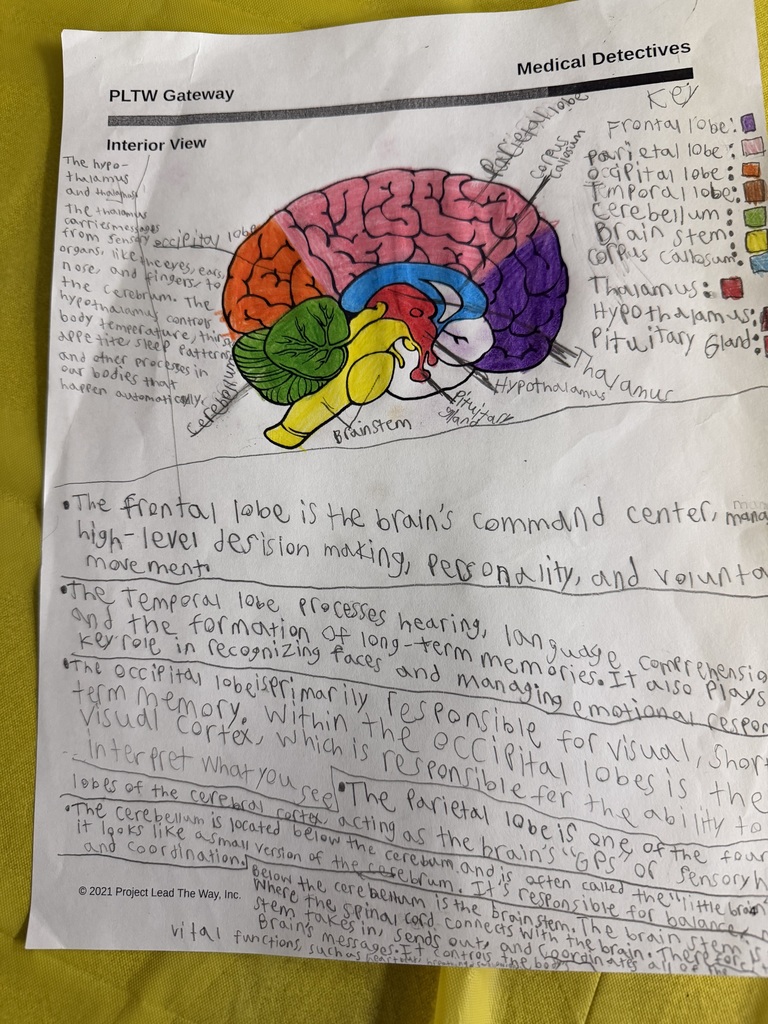 PLTW Gateway
Medical Detectives
Interior View
Key
Frontal lobe:
parietal lobe:
occipital lobe:
Tmporal lobe:
Cerebellum:
Brain stem:
corpus callosum:
Thalamus:
Hypothalamus:
Pituitary Gland:
The hypo-
thalamus
and thalamus
The thalamus
carries messages
from sensory
organs, like the eyes, ears,
nose, and fingers, to
the cerebrum. The
hypothalamus controls
body temperature, thirst
appetite, sleep patterns
and other processes in
our bodies that
happen automatically.
occipital lobe
Parietal lobe
corpus
callosum
Cerebellum
Brainstem
Pituitary
gland
Hypothalamus
Thalamus
•The frontal lobe is the brain's command center, mana
high-level desision making, personality, and volunta
movement.
•The Temporal lobe processes hearing, language comprehensio
and the formation of long-term memories. It also plays
key role in recognizing faces and managing emotional respon
•The occipital lobe is primarily responsible for visual, short
term memory. Within the occipital lobes is the
visual cortex, which is responsible for the ability to
interpret what you see
•The parietal lobe is one of the four
lobes of the cerebral cortex, acting as the brain's "GPS" or sensory h
•The cerebellum is located below the cerebum and is often called the "little brain"
it looks like a small version of the cerebrum. It's responsible for balance
and coordination.
Below the cerebellum is the brain stem. The brain stem is
Where the spinal cord connects with the brain. Therefor
stem takes in, sends out, and coordinates all of the
Brain's messages. It controls the body
vital functions, such as
© 2021 Project Lead The Way, Inc.